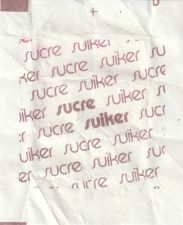 sucre suiker su
ker sucre suiker
sucre suiker suc
iker sucre suiker
sucre suiker suc
uiker sucre suiker
sucre suiker suc
iker sucre suiker